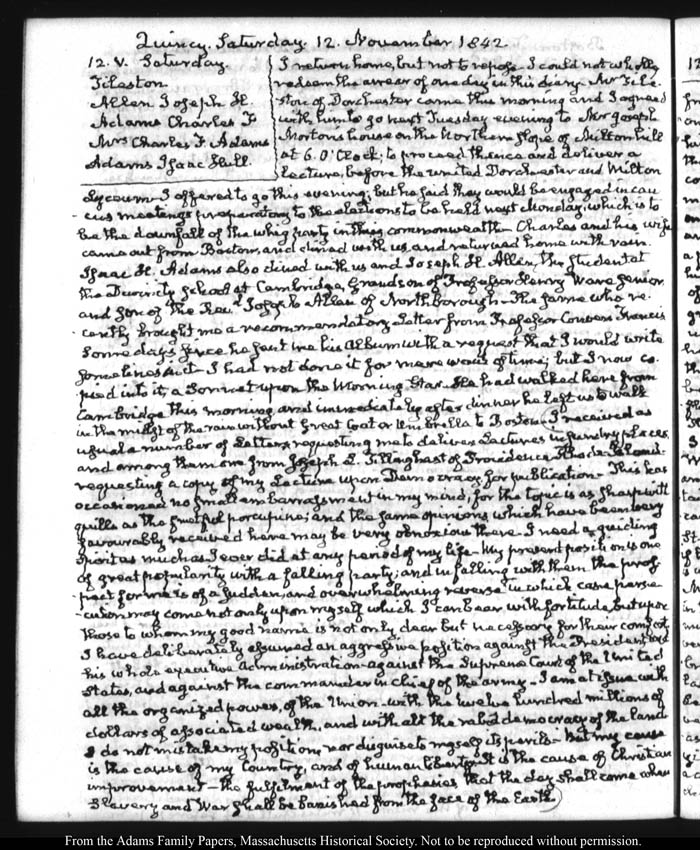 Quincy. Saturday. 12. November 1842
12. V. Saturday.
Tileston
Allen Joseph H.
Adams Charles F
Mrs Charles F. Adams
Adams Isaac Hull.
I return home, but not to repose. I could not wholly
redeem the arrear of one day in this diary. Mr Tile-
ston of Dorchester came this morning and I agreed
with him to go next Tuesday evening to Mr Joseph
Morton's house on the Northern slope of Milton hill
at 6. O'Clock; to proceed thence and deliver a
Lecture, before the united Dorchester and Milton
Lyceum. I offered to go this evening; but he said they would be engaged in cau
cus meetings preparatory to the elections to be held next Monday, which is to
be the downfall of the whig party in this commonwealth. Charles and his wife
came out from Boston, and dined with us and returned home with rain.
Isaac H. Adams also dined with us and Joseph H. Allen, the Student at
the Divinity School at Cambridge, Grandson of Professor Henry Ware senior
and son of The Revd. Joseph Allen of Northborough—The same who re-
cently brought me a recommendatory Letter from Professor Convers Francis
Some days since he sent me his Album with a request that I would write
some lines in it—I had not done it for mere want of time; but I now co-
pied into it, a Sonnet upon the Morning Star. He had walked here from
Cambridge this morning, and immediately after dinner he left us to walk
in the midst of the rain without Great Coat or Umbrella to Boston. I received as
usual a number of Letters requesting me to deliver Lectures in sundry places,
and among them one from Joseph L. Tillinghast of Providence, Rhode-Island.
requesting a copy of my Lecture upon Democracy, for publication—This has
occasioned no small embarrassment in my mind; for the topic is as sharp with
quills as the fretful porcupine; and the same opinions which have been very
favourably received here may be very obnoxious there. I need a guiding
Spirit as much as I ever did at any period of my life. My present position is one
of great popularity with a falling party; and in falling with them the pros-
pect for me is of a sudden, and overwhelming reverse in which case perse-
cution may come not only upon myself which I can bear with fortitude, but upon
those to whom my good name is not only dear but necessary for their comfort
I have deliberately assumed an aggressive position against the President and
his whole executive Administration—against the Supreme Court of the United
States, and against the commander in chief of the army—I am at issue with
all the organized powers, of the Union. with the twelve hundred millions of
dollars of associated wealth, and with all the rabid democracy of the land
I do not mistake my position, nor disguise to myself its perils—But my cause
is the cause of my Country, and of human Liberty. It is the cause of Christian
improvement—the fulfilment of the prophecies that the day shall come when
Slavery and War shall be banished from the face of the Earth)
From the Adams Family Papers, Massachusetts Historical Society. Not to be reproduced without permission.